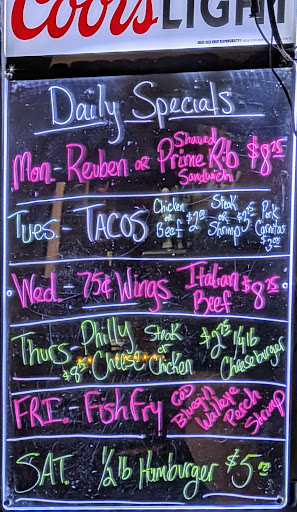 Coors LIGHT
Daily Specials
Mon - Reuben or Shaved Prime Rib Sandwich $8.75
Tues - TACOS Chicken Beef $2.00 Steak or Shrimp $2.50 Pork Carnitas $2.00
Wed. - 75¢ Wings Italian Beef $8.75
Thurs - Philly Steak Cheese Chicken $8.75 $2.75 1/4 lb Cheeseburger
FRI. - Fish Fry COD Bluegill Walleye Perch Shrimp
SAT. 1/2 lb Hamburger $5.00